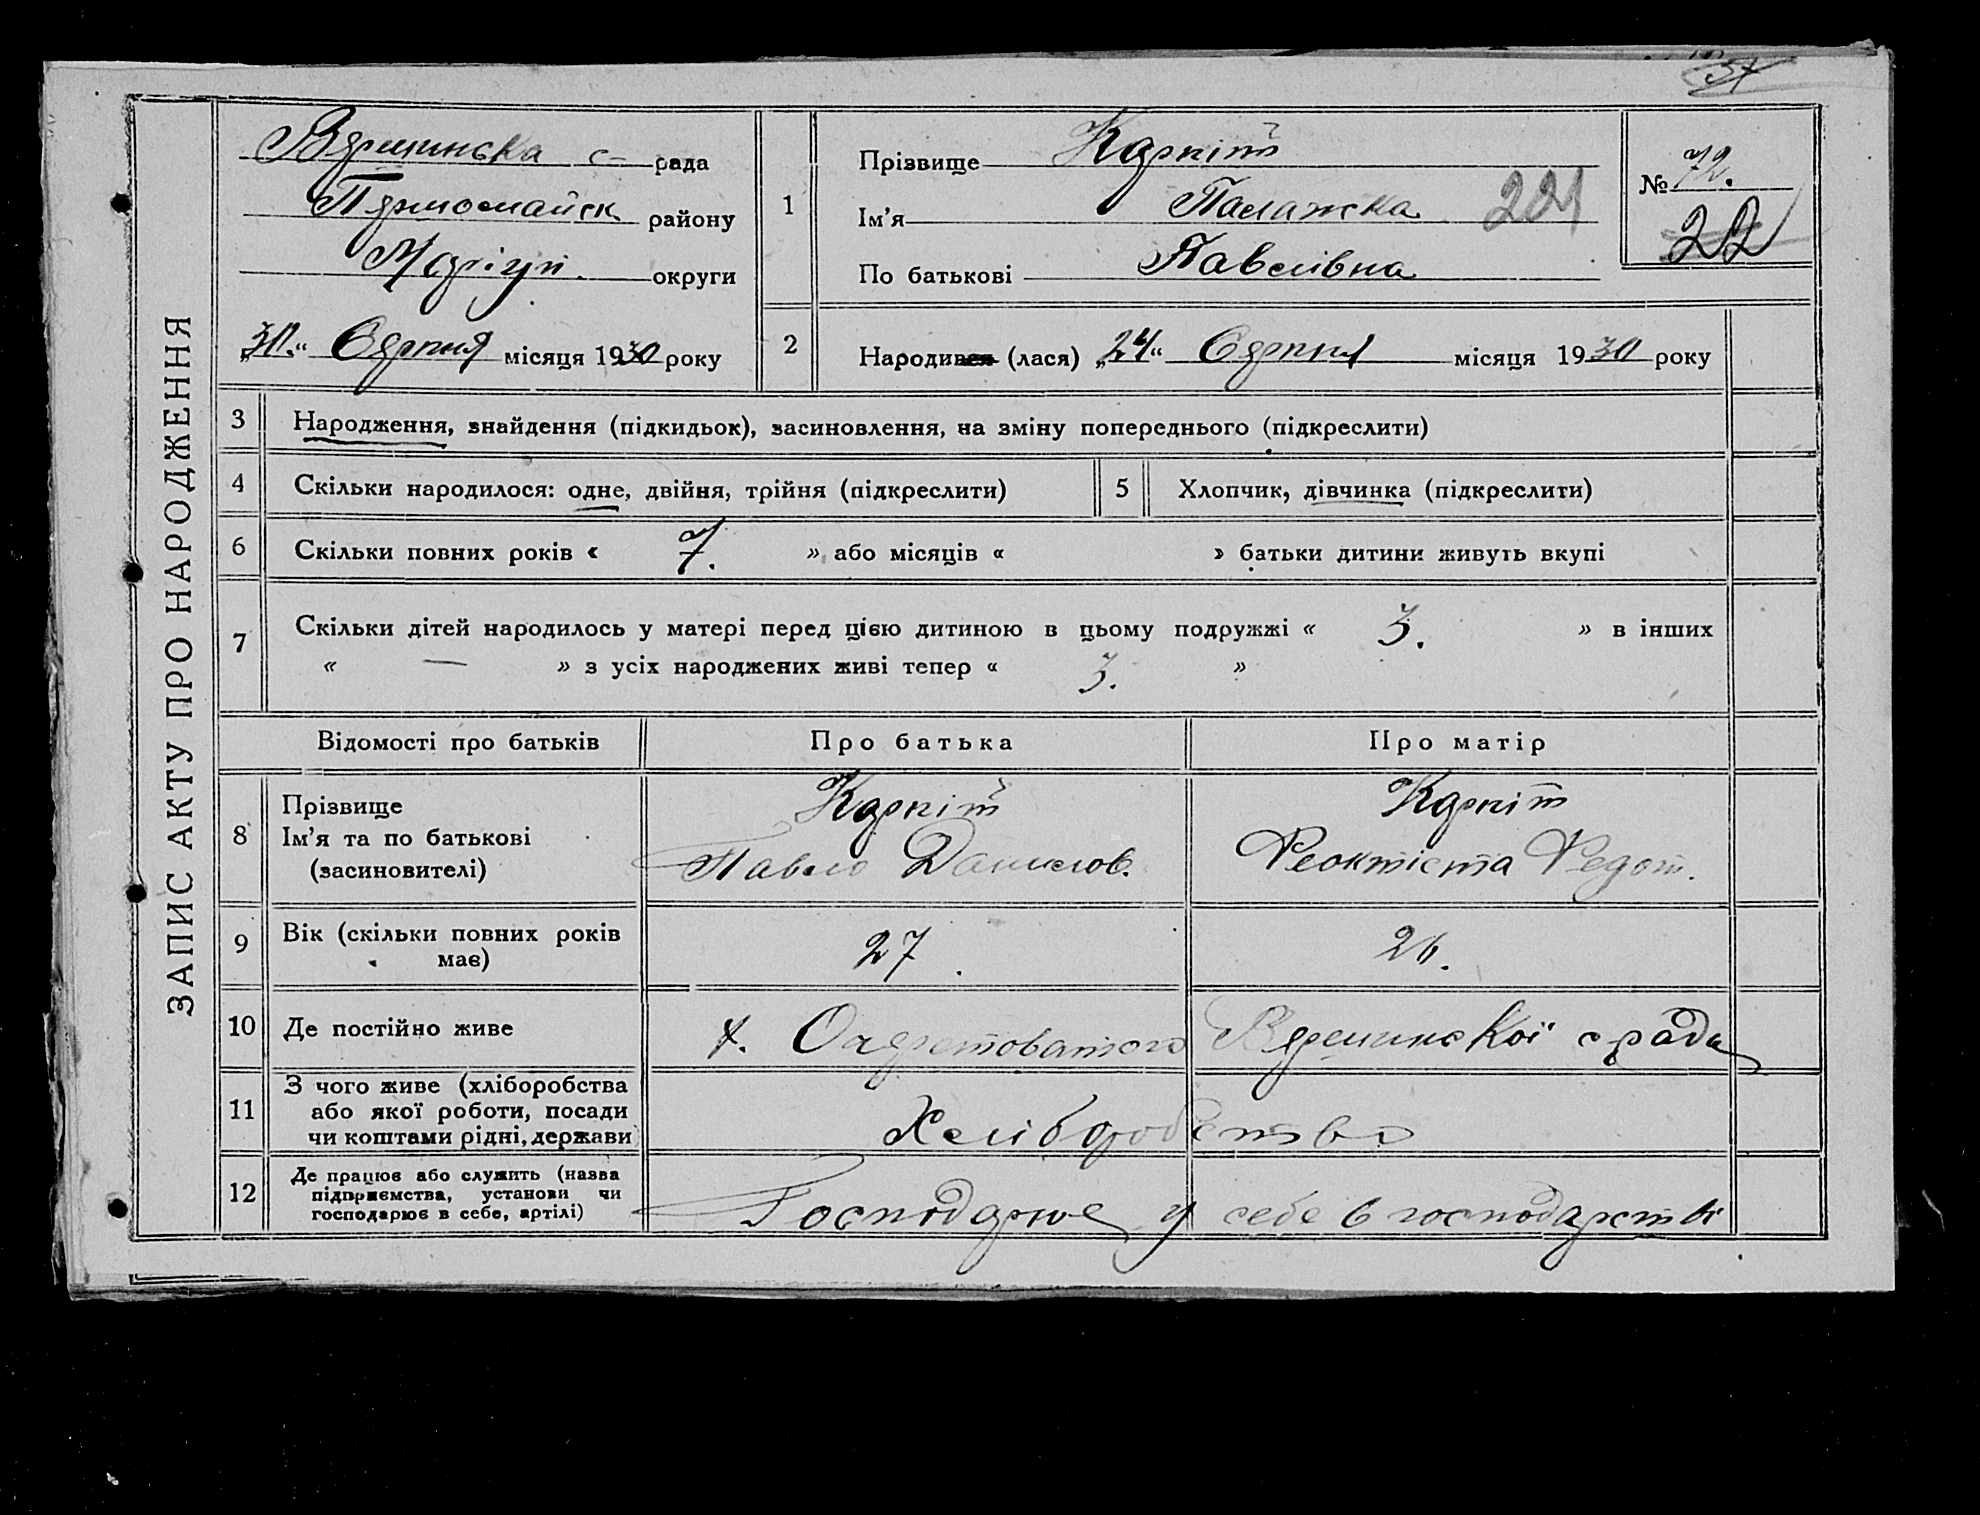 ЗАПИС АКТУ ПРО НАРОДЖЕННЯ
с- рада
Первомайск району
округи
„30.“ Серпня місяця 1930 року
1
Прізвище Карпіт
Ім'я Палажка 221
По батькові Павлівна
№ 72.
22
2 Народився (лася) „24“ Серпня місяця 1930 року
3 Народження, знайдення (підкидьок), засиновлення, на зміну попереднього (підкреслити)
4 Скільки народилося: одне, двійня, трійня (підкреслити) 5 Хлопчик, дівчинка (підкреслити)
6 Скільки повних років « 7. » або місяців « » батьки дитини живуть вкупі
7 Скільки дітей народилось у матері перед цією дитиною в цьому подружжі « 3. » в інших
« — » з усіх народжених живі тепер « 3. »
Відомості про батьків Про батька Про матір
8 Прізвище Карпіт Карпіт
Ім'я та по батькові Павло Данилов. Феоктіста Федот.
(засиновителі)
9 Вік (скільки повних років 27 26.
має)
10 Де постійно живе х. сради
11 З чого живе (хліборобства
або якої роботи, посади
чи коштами рідні, держави Хліборобство
12 Де працює або служить (назва
підприємства, установи чи
господарює в себе, артілі) Господарює у себе в господарстві